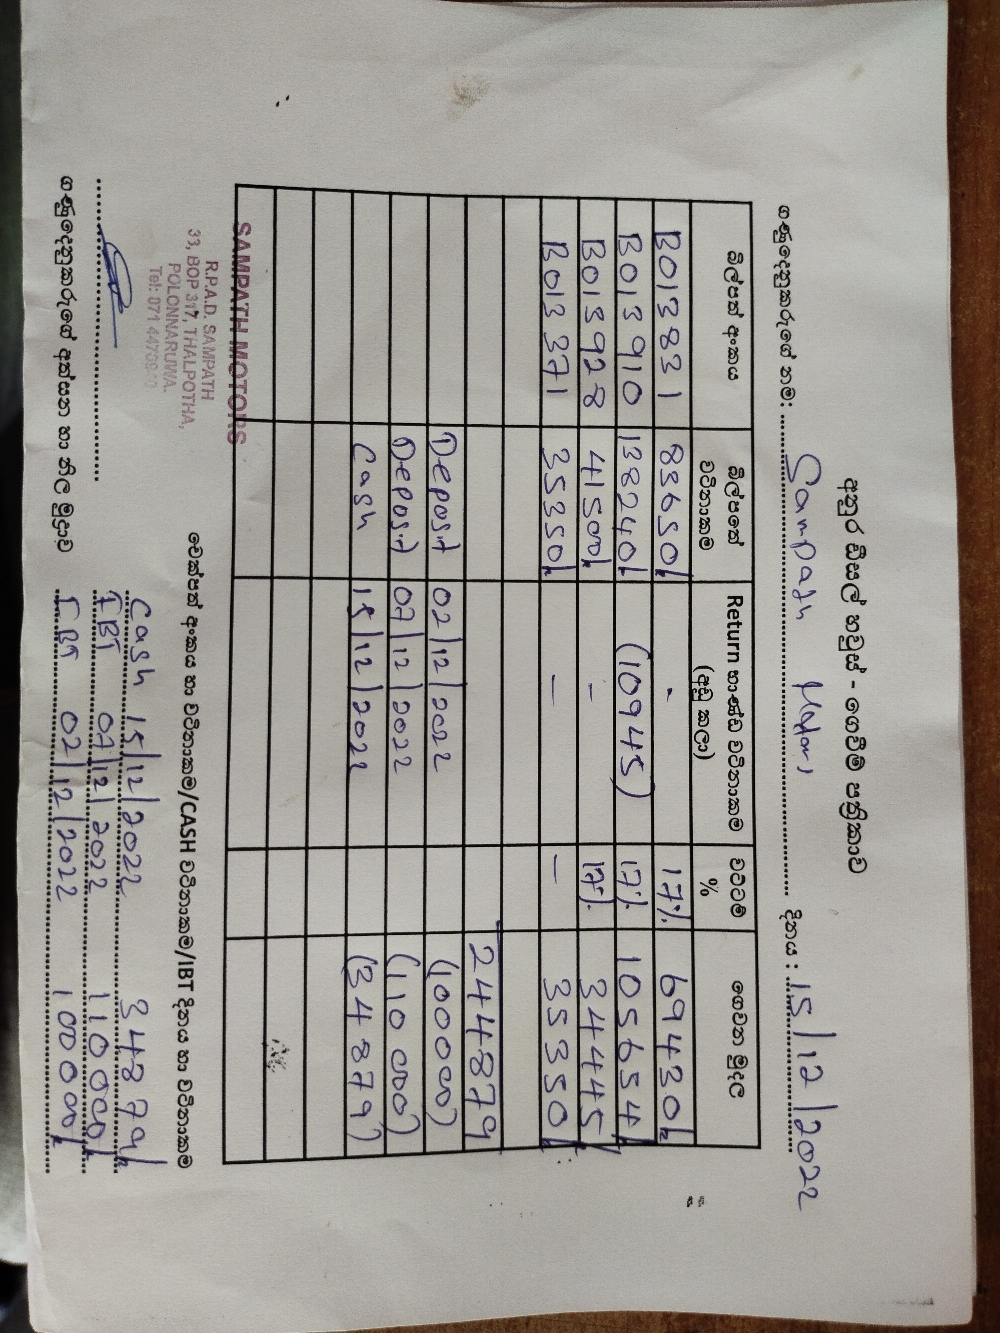 අනුර ඩීසල් හවුස් - ගෙවීම් පත්‍රිකාව
ගණුදෙනුකරුගේ නම: Sampath Motors දිනය : 15/12/2022
බිල්පත් අංකය බිල්පතේ වටිනාකම Return භාණ්ඩ වටිනාකම (අඩු කලා) වට්ටම් % ගෙවන මුදල
B013831 83650/- - 17% 69430/-
B013910 138240/- (10945) 17% 105654/-
B013928 41500/- - 17% 34445/-
B013371 35350/- — — 35350/-
244879
Deposit 02/12/2022 (100000)
Deposit 07/12/2022 (110000)
Cash 15/12/2022 (34879)
SAMPATH MOTORS
R.P.A.D. SAMPATH
33, BOP 317, THALPOTHA,
POLONNARUWA.
Tel: 071
චෙක්පත් අංකය හා වටිනාකම/CASH වටිනාකම/IBT දිනය හා වටිනාකම
Cash 15/12/2022 34879/-
IBT 07/12/2022 110000/-
IBT 02/12/2022 100000/-
ගණුදෙනුකරුගේ අත්සන හා නිල මුද්‍රාව